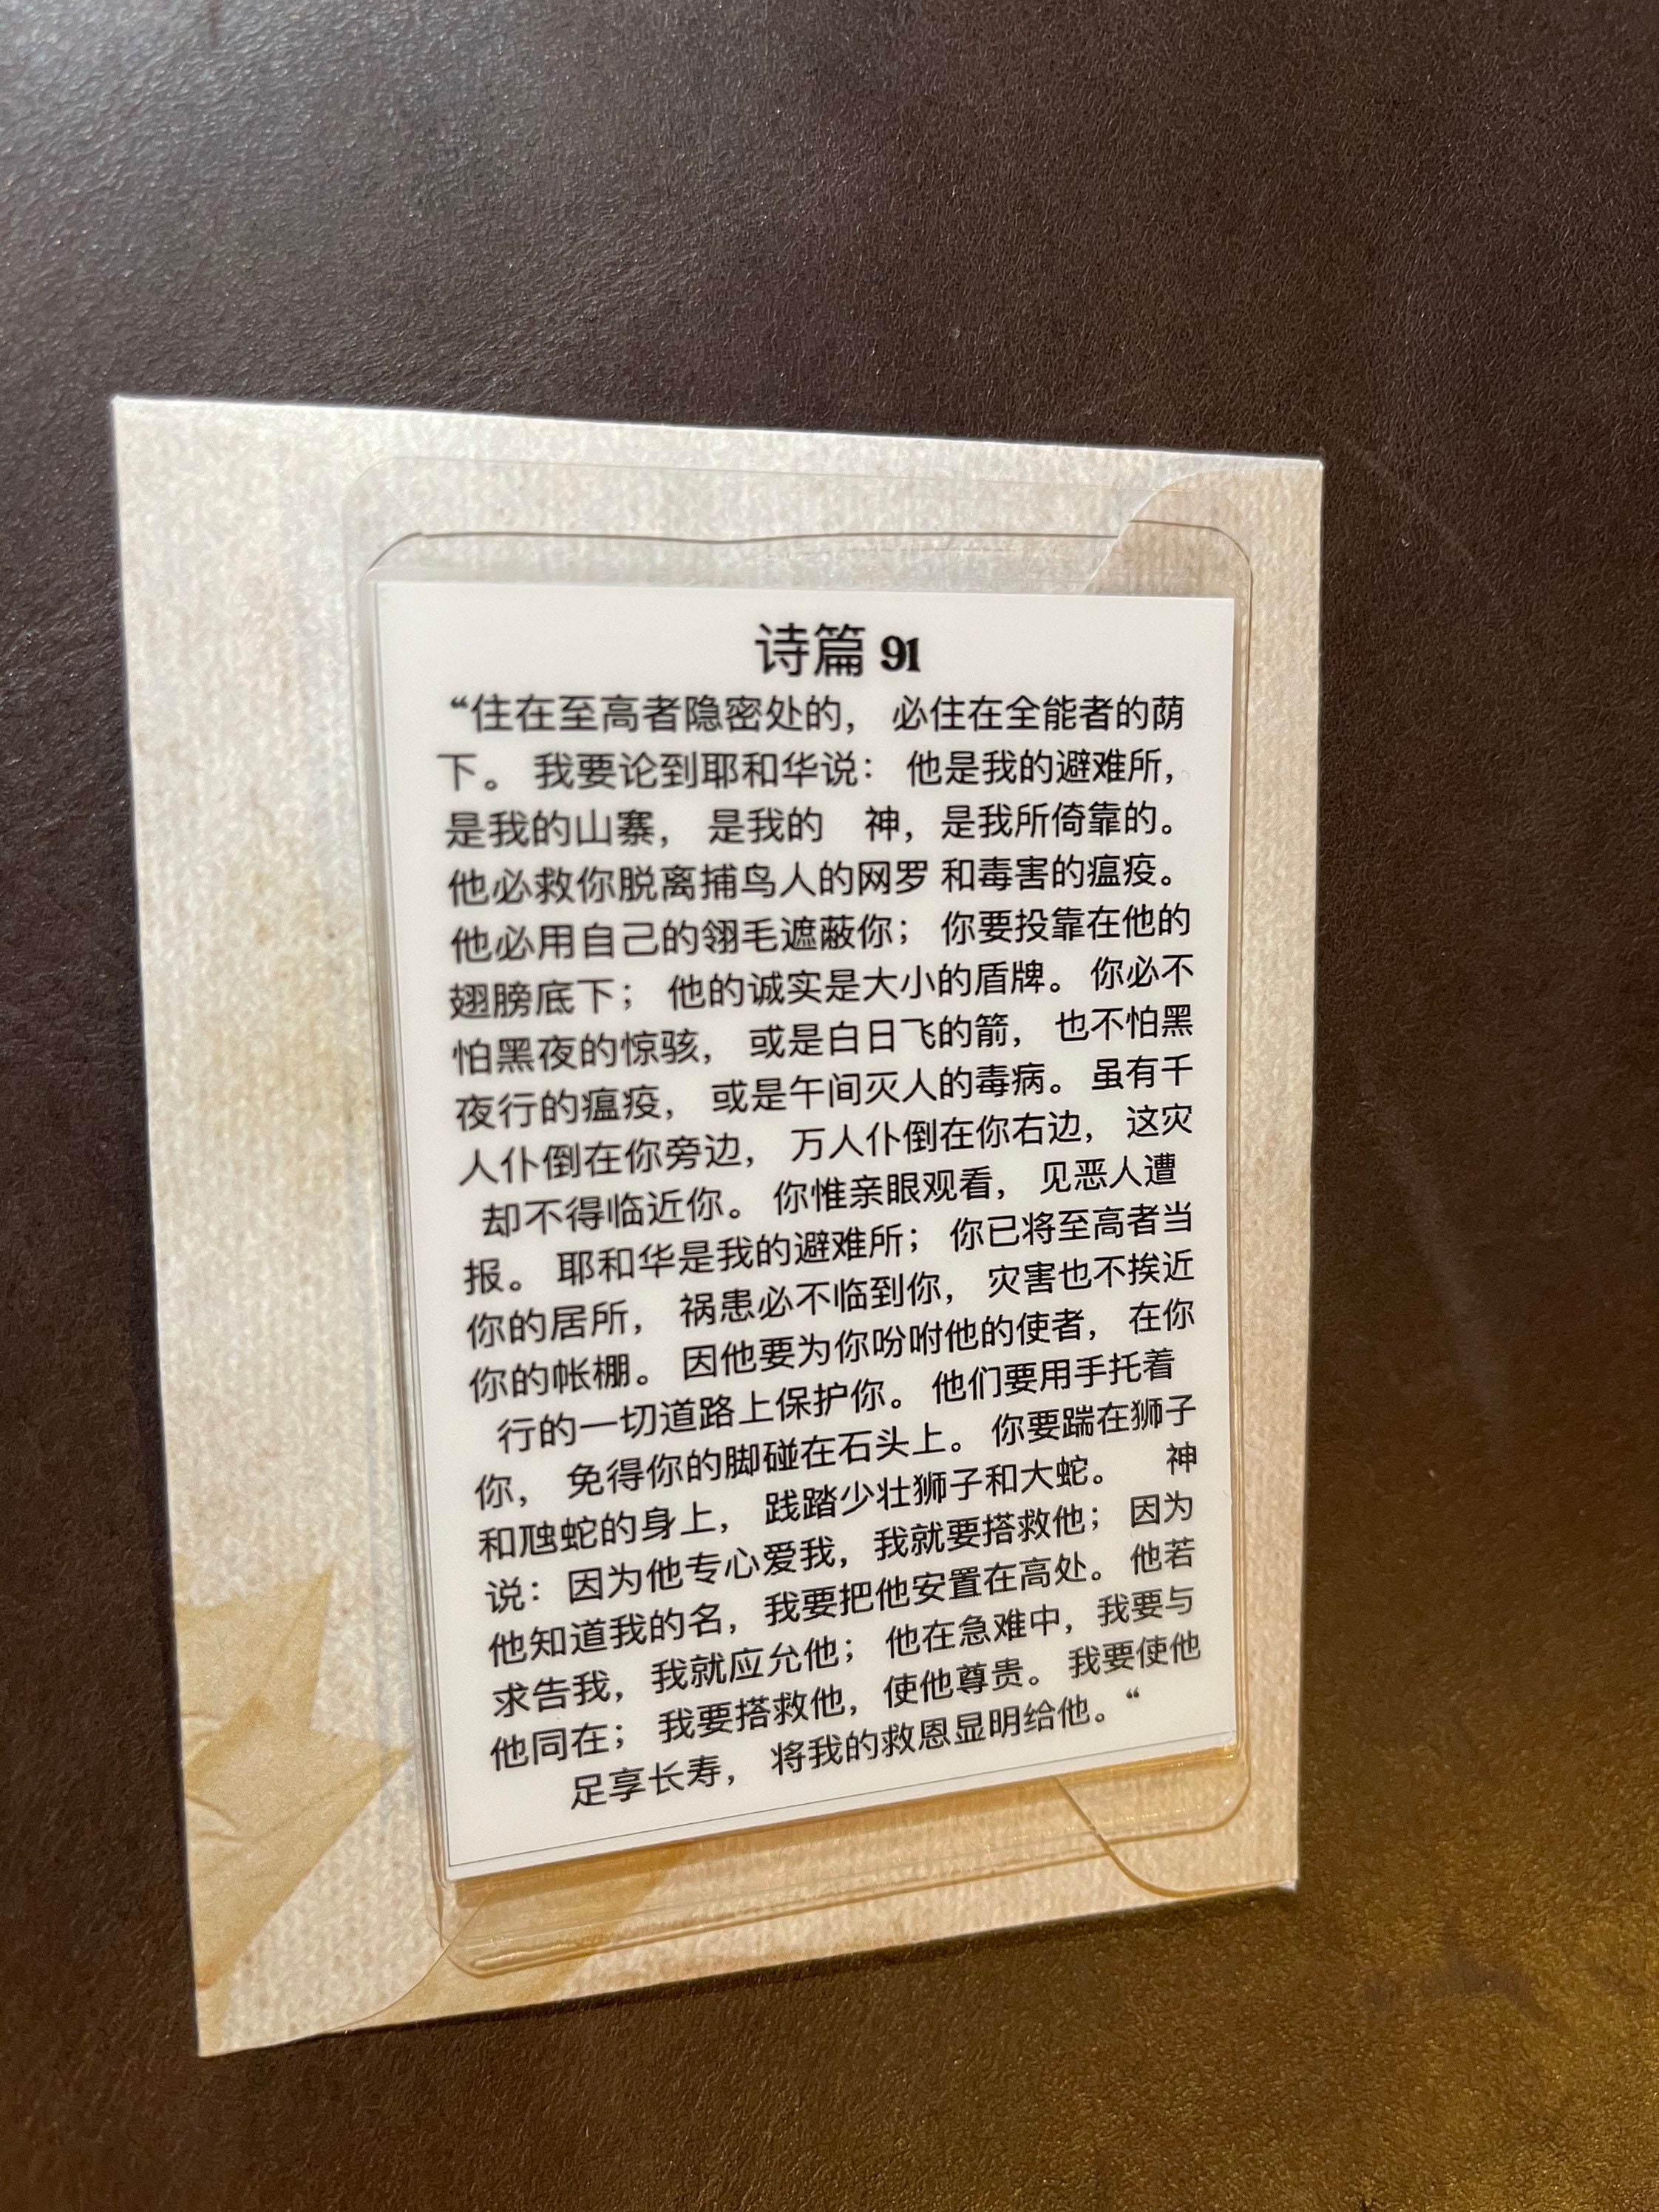 诗篇 91
“住在至高者隐密处的， 必住在全能者的荫
下。 我要论到耶和华说： 他是我的避难所，
是我的山寨， 是我的 神，是我所倚靠的。
他必救你脱离捕鸟人的网罗 和毒害的瘟疫。
他必用自己的翎毛遮蔽你； 你要投靠在他的
翅膀底下； 他的诚实是大小的盾牌。 你必不
怕黑夜的惊骇， 或是白日飞的箭， 也不怕黑
夜行的瘟疫， 或是午间灭人的毒病。 虽有千
人仆倒在你旁边， 万人仆倒在你右边， 这灾
却不得临近你。 你惟亲眼观看， 见恶人遭
报。 耶和华是我的避难所； 你已将至高者当
你的居所， 祸患必不临到你， 灾害也不挨近
你的帐棚。 因他要为你吩咐他的使者， 在你
行的一切道路上保护你。 他们要用手托着
你， 免得你的脚碰在石头上。 你要踹在狮子
和虺蛇的身上， 践踏少壮狮子和大蛇。 神
说：因为他专心爱我，我就要搭救他；因为
他知道我的名，我要把他安置在高处。 他若
求告我，我就应允他； 他在急难中，我要与
他同在； 我要搭救他，使他尊贵。 我要使他
足享长寿， 将我的救恩显明给他。“